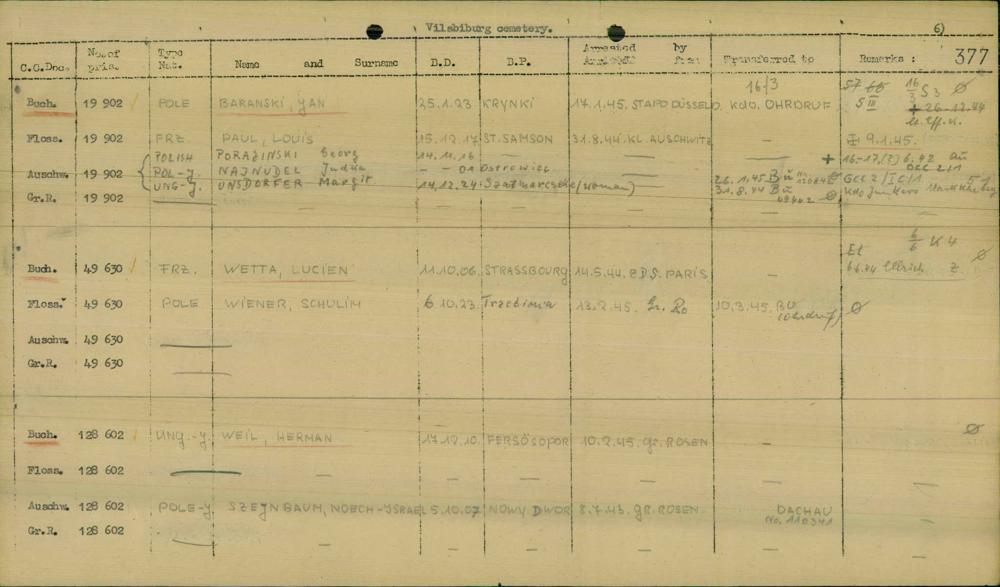 Vilsbiburg cemetery. 6)
377
C.C.Doc. No.of pris. Type Nat. Name and Surname B.D. B.P. Arrested by Transferred to Remarks :
16/3
Buch. 19 902 POLE BARANSKI, JAN 25.1.23 KRYNKI 17.1.45. STAPO DÜSSELD. KDO. OHRDRUF
+ 26.12.44
Floss. 19 902 FRZ. PAUL, LOUIS 15.12.17 ST. SAMSON 31.8.44. KL. AUSCHWITZ — 9.1.45.
POLISH PORAZINSKI Georg 14.11.16 — — —
Auschw. 19 902 POL-J. NAJNUDEL Judka - - 01 Ostrowiec —
UNG-J. UNSDORFER Margit 14.12.24 (woman) 26.1.45 Bu
31.8.44
Gr.R. 19 902 — — — — — —
Buch. 49 630 FRZ. WETTA, LUCIEN 11.10.06. STRASSBOURG 14.5.44. BDS. PARIS —
Floss. 49 630 POLE WIENER, SCHULIM 6.10.23 Trzebinia 13.2.45. Gr. Ro 10.3.45. BU (Ohrdruf) Ø
Auschw. 49 630 —
Gr.R. 49 630 —
Buch. 128 602 UNG.-J. WEIL, HERMAN 17.12.10. FERSÖSOPOR 10.2.45. GR. ROSEN — Ø
Floss. 128 602 — — — — — —
Auschw. 128 602 POLE-J SZEJNBAUM, NOECH-ISRAEL 5.10.07 NOWY DWOR 8.7.43. GR. ROSEN. DACHAU
No. 110341
Gr.R. 128 602 — — — — — —